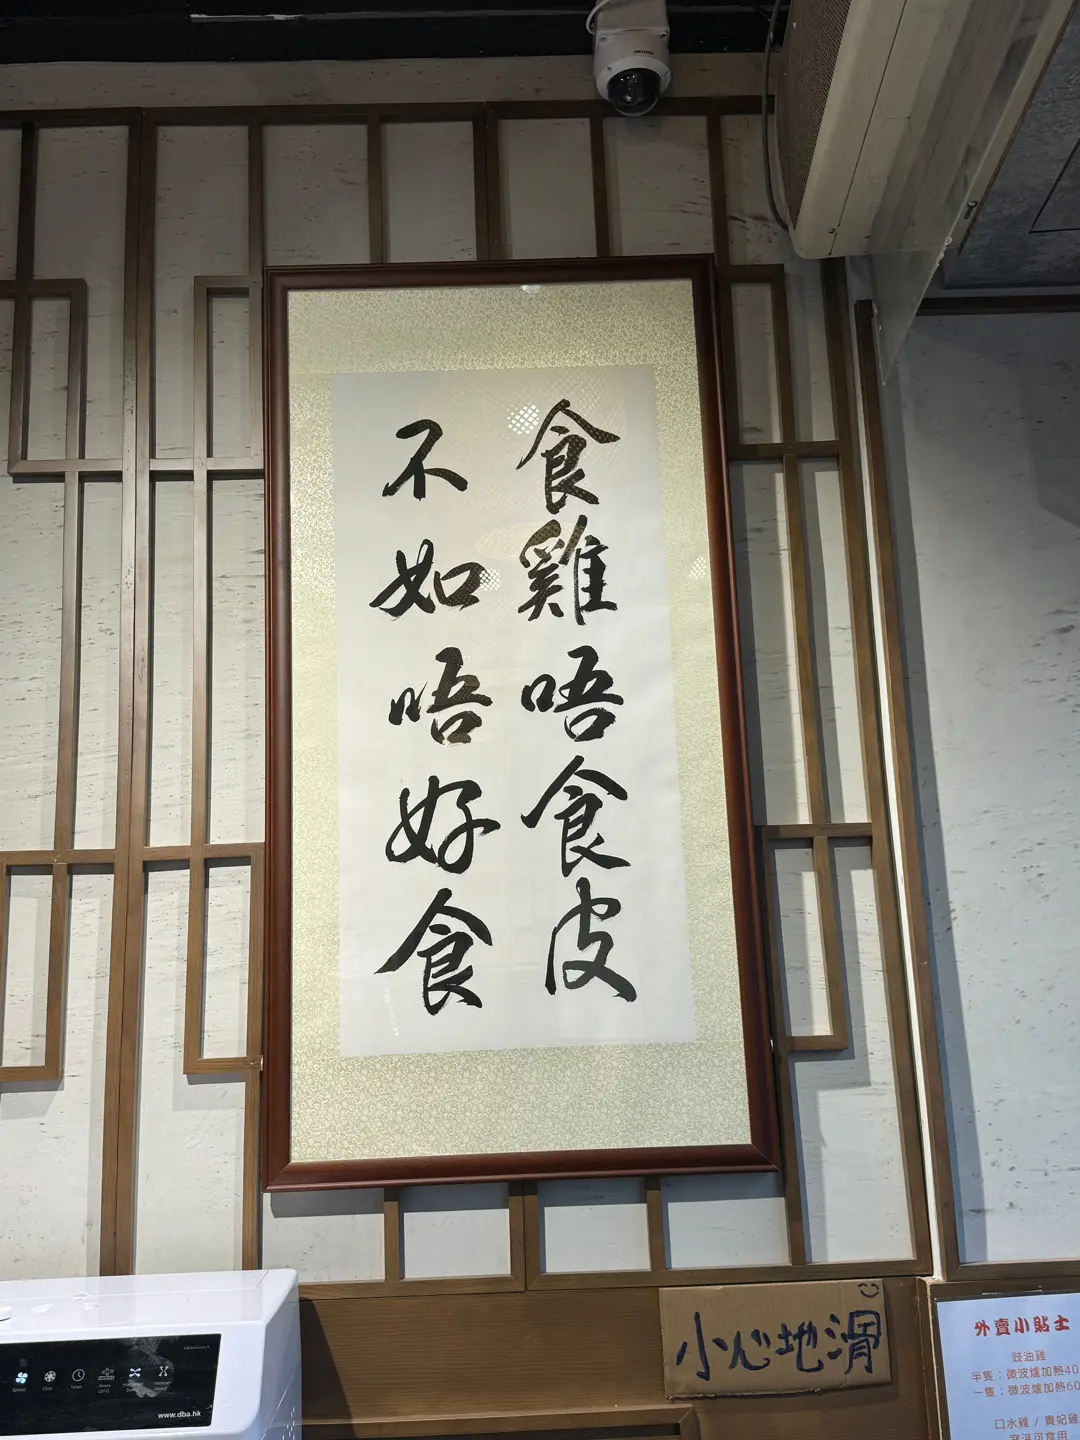 食雞唔食皮
不如唔好食
小心地滑
外賣小貼士
豉油雞
半隻：微波爐加熱40
一隻：微波爐加熱60
口水雞 / 貴妃雞
室溫可食用
Speed
Timer
www.dba.hk